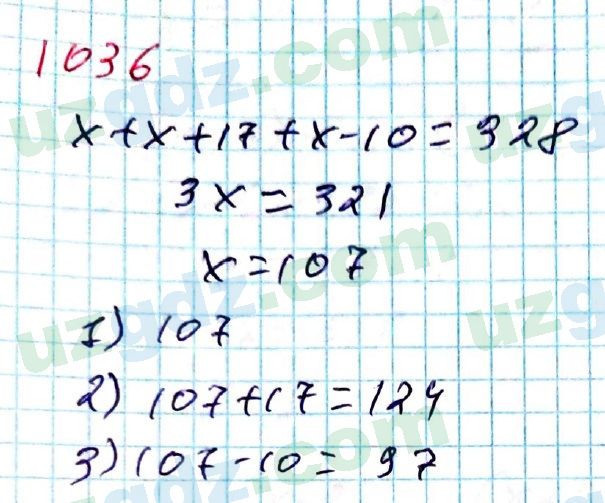 1036
x+x+17+x-10=328
3x=321
x=107
1) 107
2) 107+17=124
3) 107-10=97
uzgdz.com
uzgdz.com
uzgdz.com